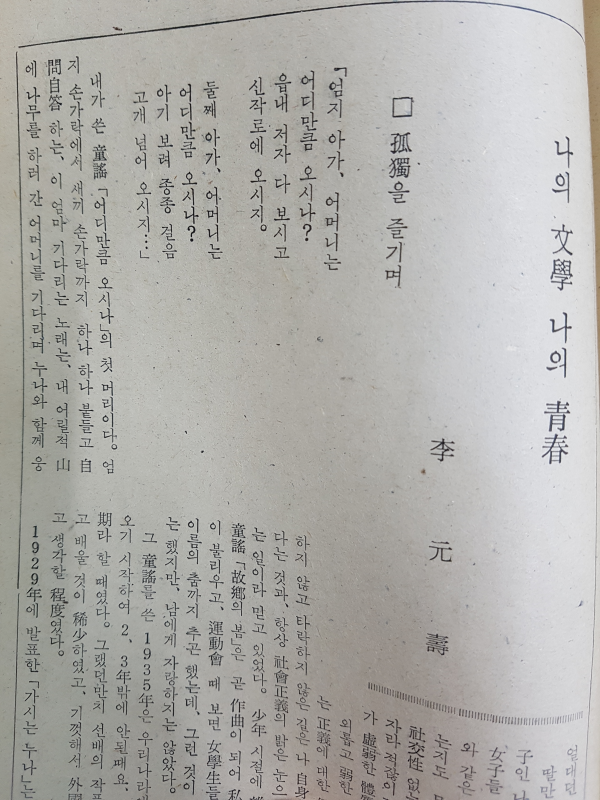 나의 文學 나의 青春
李元壽
□ 孤獨을 즐기며
「엄지 아가, 어머니는
어디만큼 오시나?
읍내 저자 다 보시고
신작로에 오시지.
둘째 아가, 어머니는
어디만큼 오시나?
아기 보려 종종 걸음
고개 넘어 오시지…」
내가 쓴 童謠「어디만큼 오시나」의 첫 머리이다. 엄
지 손가락에서 새끼 손가락까지 하나 하나 붙들고 自
問自答 하는, 이 엄마 기다리는 노래는, 내 어릴적 山
에 나무를 하러 간 어머니를 기다리며 누나와 함께 웅
얼대던
딸만
子인 나
女子들
와 같은
는지도
社交性 없는
자라 적잖이
가 虛弱한 體
외롭고 弱한
는 正義에 대한
하지 않고 타락하지 않은 길은 나 自身
다는 것과, 항상 社會正義의 밝은 눈으
는 일이라 믿고 있었다. 少年 시절에
童謠「故鄕의 봄」은 곧 作曲이 되어 私
이 불리우고, 運動會 때 보면 女學生들
이름의 춤까지 추곤 했는데, 그런 것이
는 했지만, 남에게 자랑하지는 않았다.
그 童謠를 쓴 1935年은 우리나라
오기 시작하여 2, 3年밖에 안될 때요.
期라 할 때였다. 그랬던만치 선배의 작품
고 배울 것이 稀少하였고, 기껏해서 外國
고 생각할 程度였다.
1929年에 발표한「가시는 누나」는